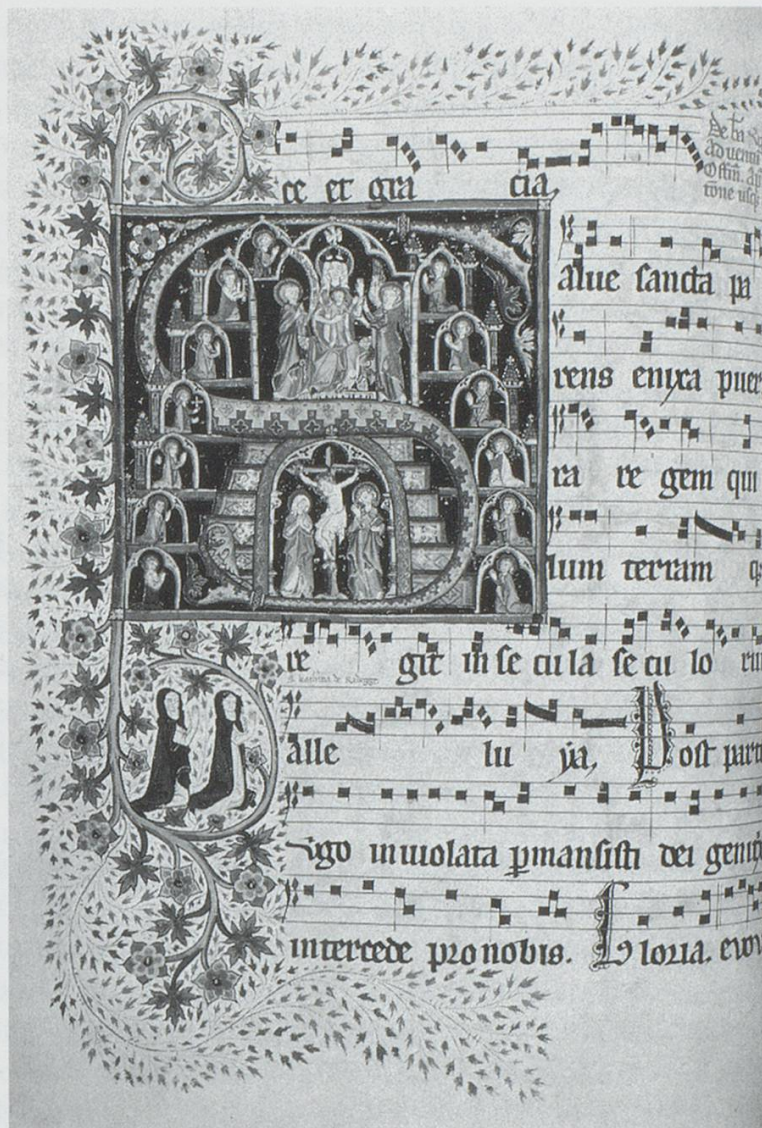 ce et gra cia
De bā
Aduentū
tone usq
alue sancta pa
rens enixa puer
ra re gem qui
lum terram
re git in se cu la se cu lo
alle lu ya, Post part
-go inuiolata pmansisti dei genit
intercede pro nobis. Gloria. evov